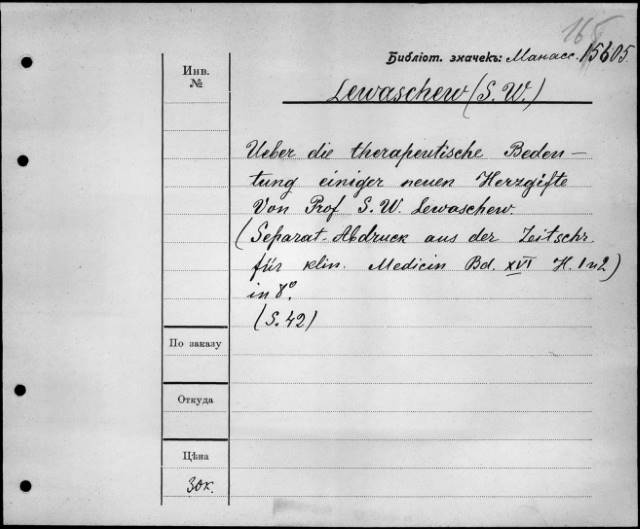 165
Библіот. значекъ: Манасс. 15605.
Инв.
№
Lewaschew (S. W.)
Ueber die therapeutische Beden-
tung einiger neuen Herzgifte
Von Prof S. W. Lewaschew.
(Separat-Abdruck aus der Zeitschr.
für klin. Medicin Bd. XVI H. 1 u 2)
in 8°.
(S. 42)
По заказу
Откуда
Цѣна
30к.